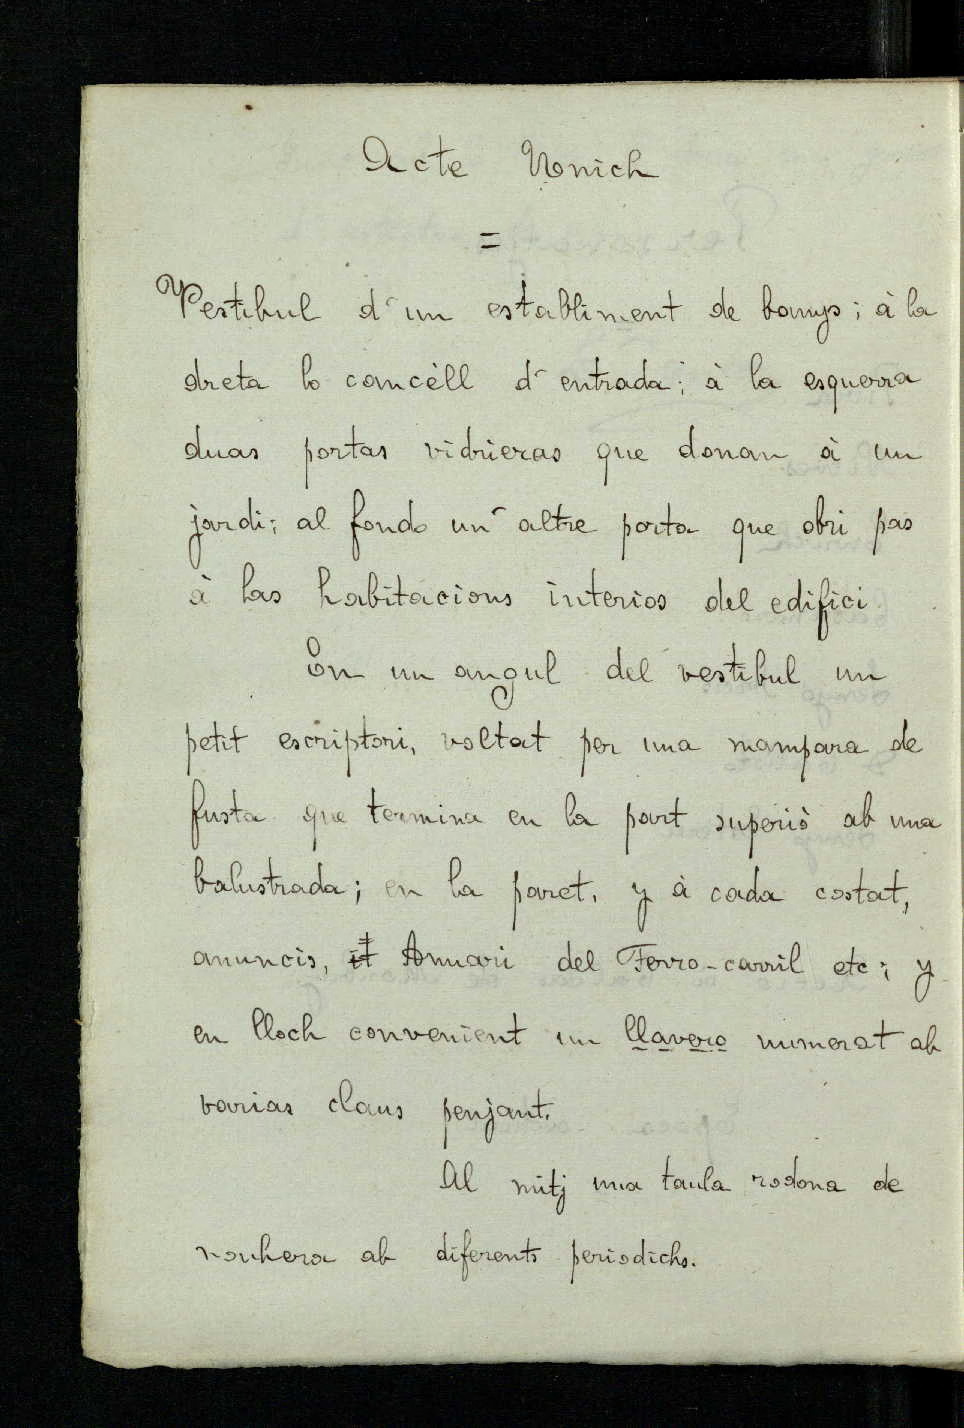 Acte Unich
=
Vestibul d'un establiment de banys; à la
dreta lo cancèll d'entrada; à la esquerra
duas portas vidrieras que donan à un
jardi; al fondo un' altre porta que obri pas
à las habitacions interios del edifici
En un angul del vestibul un
petit escriptori, voltat per una mampara de
fusta que termina en la part superió ab una
balustrada; en la paret, y à cada costat,
anuncis, Anuari del Ferro-carril etc; y
en lloch convenient un llavero numerat ab
varias claus penjant.
Al mitj una taula rodona de
nouhera ab diferents periodichs.